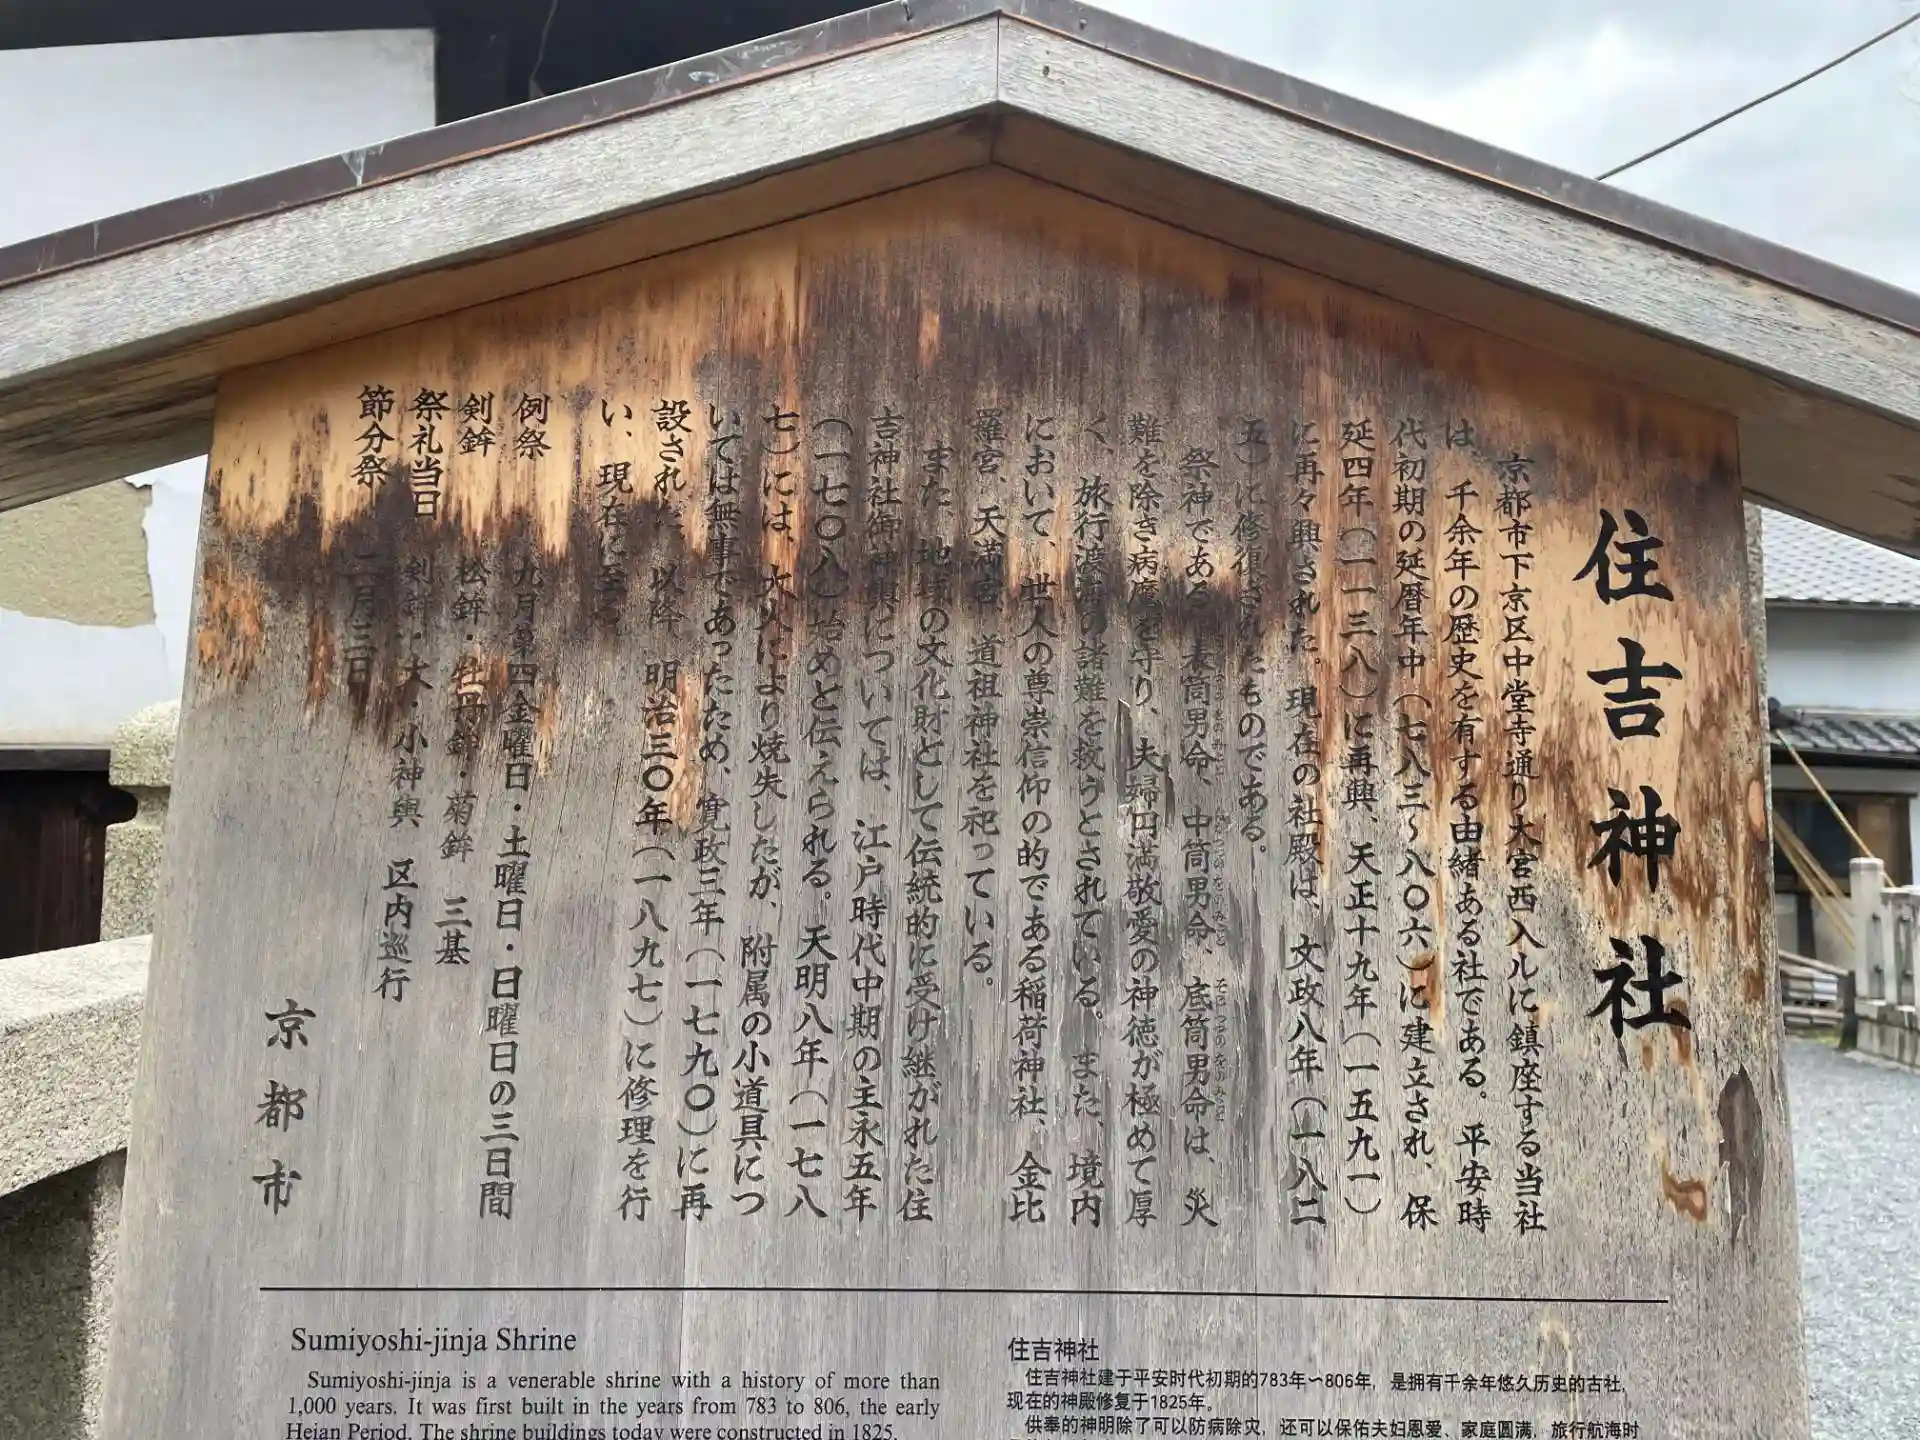 住吉神社
京都市下京区中堂寺通り大宮西入ルに鎮座する当社
は、千余年の歴史を有する由緒ある社である。平安時
代初期の延暦年中（七八三～八〇六）に建立され、保
延四年（一一三八）に再興、天正十九年（一五九一）
に再々興された。現在の社殿は、文政八年（一八二
五）に修復されたものである。
祭神である表筒男命、中筒男命、底筒男命は、災
難を除き病魔を守り、夫婦円満敬愛の神徳が極めて厚
く、旅行渡海の諸難を救うとされている。また、境内
において、世人の尊崇信仰の的である稲荷神社、金比
羅宮、天満宮、道祖神社を祀っている。
また、地域の文化財として伝統的に受け継がれた住
吉神社御神輿については、江戸時代中期の主永五年
（一七〇八）始めと伝えられる。天明八年（一七八
七）には、大火により焼失したが、附属の小道具につ
いては無事であったため、寛政三年（一七九〇）に再
設された。以降、明治三〇年（一八九七）に修理を行
い、現在に至る。
例祭 九月第四金曜日・土曜日・日曜日の三日間
剣鉾 松鉾・牡丹鉾・菊鉾 三基
祭礼当日 剣鉾・大・小神輿 区内巡行
節分祭 二月三日
京都市
Sumiyoshi-jinja Shrine
Sumiyoshi-jinja is a venerable shrine with a history of more than
1,000 years. It was first built in the years from 783 to 806, the early
Heian Period. The shrine buildings today were constructed in 1825.
住吉神社
住吉神社建于平安时代初期的783年～806年，是拥有千余年悠久历史的古社，
现在的神殿修复于1825年。
供奉的神明除了可以防病除灾，还可以保佑夫妇恩爱、家庭圆满，旅行航海时